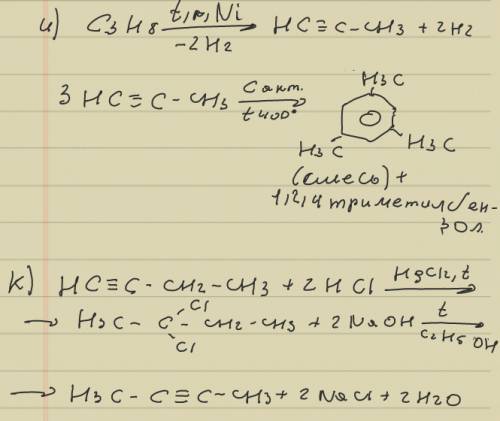 и) C3H8 t,p,Ni → -2H2 HC≡C-CH3 + 2H2
3 HC≡C-CH3 C акт. → t400° H3C H3C H3C
(смесь) +
1,2,4 триметилбен-
зол.
к) HC≡C-CH2-CH3 + 2HCl HgCl2, t →
→ H3C-C(Cl)(Cl)-CH2-CH3 + 2NaOH t → C2H5OH
→ H3C-C≡C-CH3 + 2NaCl + 2H2O